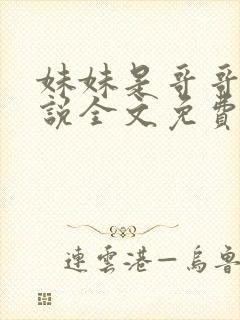 妹妹是哥哥
說全文免費
連雲港—烏魯